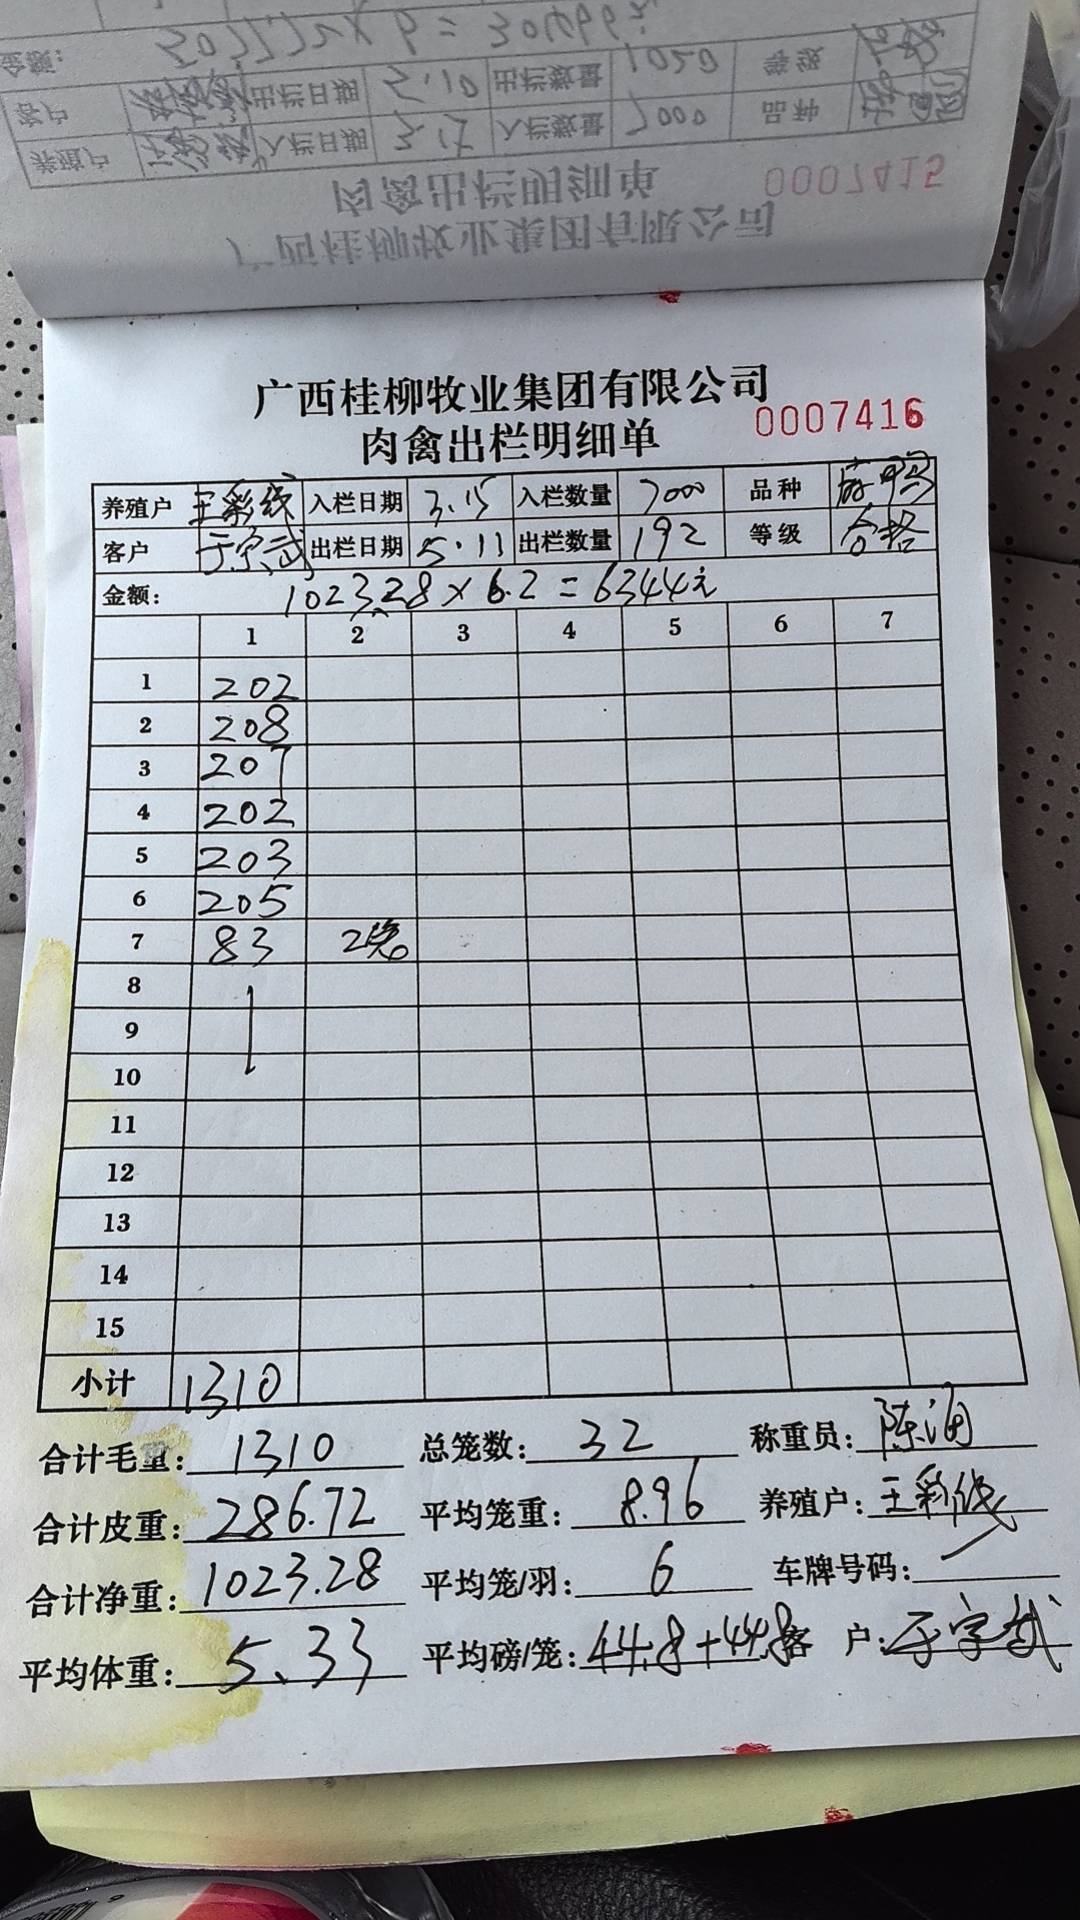 广西桂柳牧业集团有限公司
肉禽出栏明细单 0007415
养殖户 入栏日期 3.17 入栏数量 7000 品种
客户 出栏日期 5.10 出栏数量 1020 等级
金额:
广西桂柳牧业集团有限公司
肉禽出栏明细单 0007416
养殖户 王彩线 入栏日期 3.15 入栏数量 7000 品种 麻鸭
客户 于宗武 出栏日期 5.11 出栏数量 192 等级 合格
金额: 1023.28×6.2=6344元
1 2 3 4 5 6 7
1 202
2 208
3 207
4 202
5 203
6 205
7 83 2笼
8
9
10
11
12
13
14
15
小计 1310
合计毛重: 1310 总笼数: 32 称重员: 陈海
合计皮重: 286.72 平均笼重: 8.96 养殖户: 王彩线
合计净重: 1023.28 平均笼/羽: 6 车牌号码:
平均体重: 5.33 平均磅/笼: 44.8+44.8 客 户: